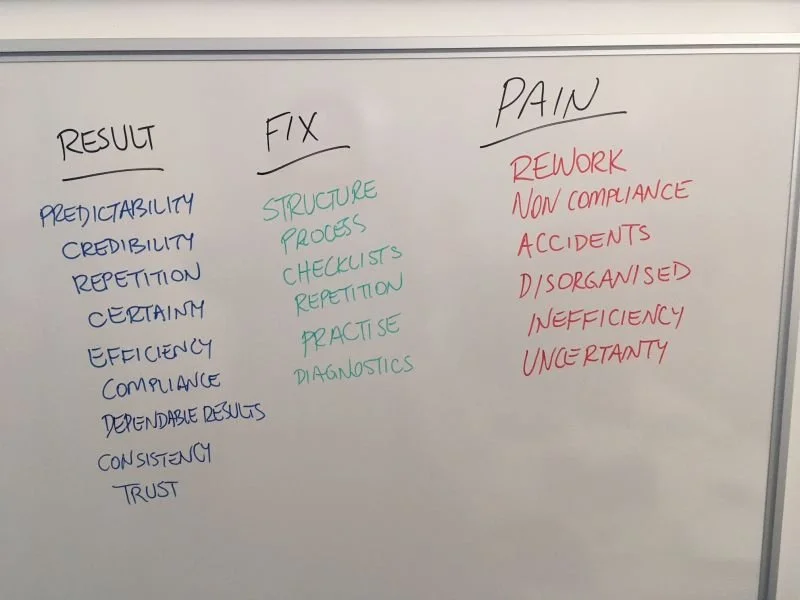 RESULT
PREDICTABILITY
CREDIBILITY
REPETITION
CERTAINTY
EFFICIENCY
COMPLIANCE
DEPENDABLE RESULTS
CONSISTENCY
TRUST
FIX
STRUCTURE
PROCESS
CHECKLISTS
REPETITION
PRACTISE
DIAGNOSTICS
PAIN
REWORK
NON COMPLIANCE
ACCIDENTS
DISORGANISED
INEFFICIENCY
UNCERTANTY